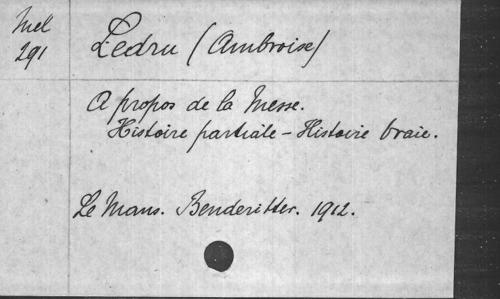 Mel
291
Ledru (Ambroise)
A propos de la Messe.
Histoire partiale - Histoire vraie.
Le Mans. Benderitter. 1912.